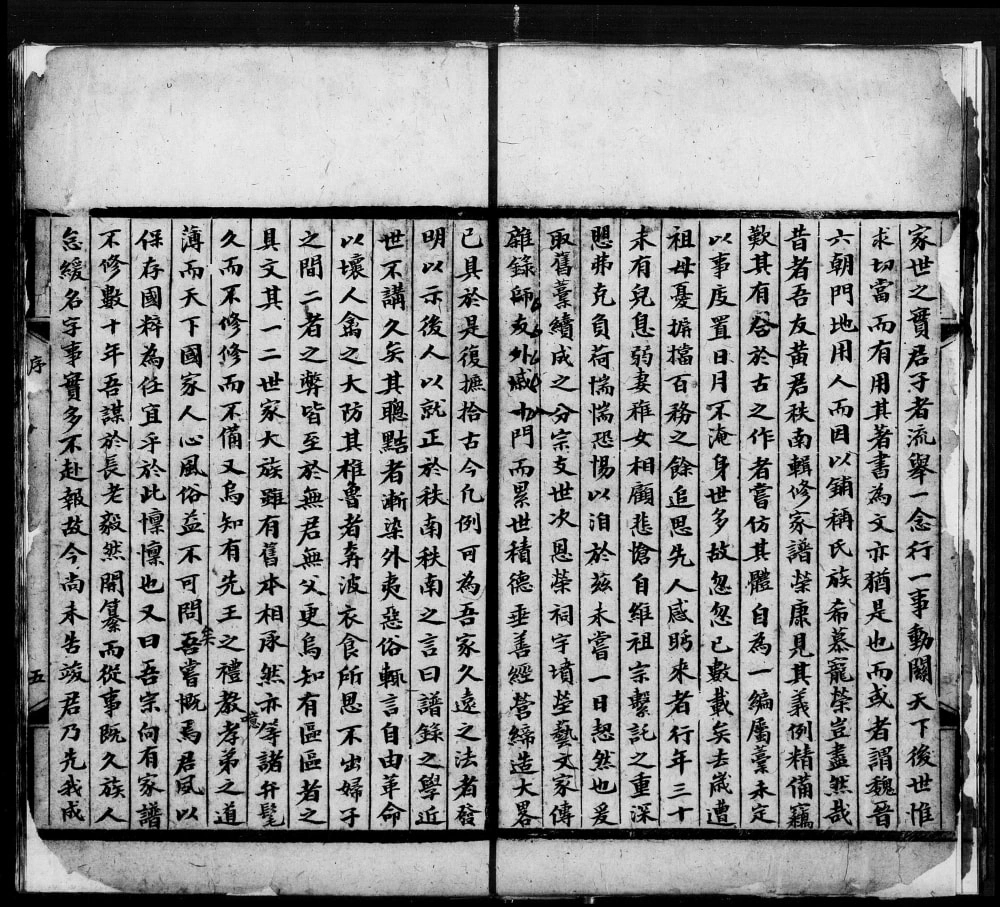 家世之實君子者流舉一念行一事動關天下後世惟
求切當而有用其著書為文亦猶是也而或者謂魏晉
六朝門地用人而因以鋪稱氏族希慕寵榮豈盡然哉
昔者吾友黃君秩南輯修家譜榮康見其義例精備竊
歎其有合於古之作者嘗仿其體自為一編屬藁未定
以事度置日月不淹身世多故忽忽已數載矣去歲遭
祖母憂摒擋百務之餘追思先人感眄來者行年三十
未有兒息弱妻稚女相顧悲愴自維祖宗繫託之重深
懼弗克負荷惴惴恐惕以洎於茲未嘗一日恝然也爰
取舊藁續成之分宗支世次恩榮祠宇墳塋藝文家傳
雜錄師友外戚十門而累世積德垂善經營締造大畧
已具於是復摭拾古今凡例可為吾家久遠之法者發
明以示後人以就正於秩南秩南之言曰譜錄之學近
世不講久矣其聰黠者漸染外夷惡俗輒言自由革命
以壞人禽之大防其椎魯者奔波衣食所思不出婦子
之間二者之弊皆至於無君無父更烏知有區區者之
具文其一二世家大族雖有舊本相承然亦等諸弁髦
久而不修修而不備又烏知有先王之禮教孝弟之道
薄而天下國家人心風俗益不可問吾嘗慨焉居風以
保存國粹為任宜乎於此懍懍也又曰吾宗向有家譜
不修數十年吾謀於長老毅然開纂而從事既久族人
怠緩名字事實多不赴報故今尚未告竣君乃先我成
序
五